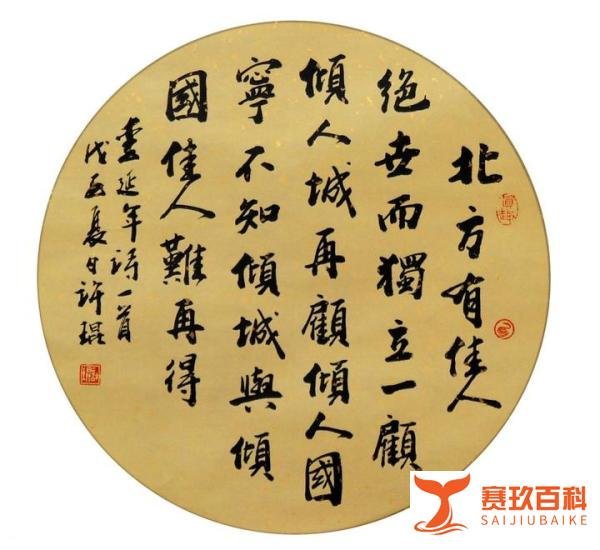 北方有佳人
絕世而獨立一顧
傾人城再顧傾人國
寧不知傾城與傾
國佳人難再得
李延年詩一首
戊戌夏日許琨
赛玖百科
SAIJIUBAIKE